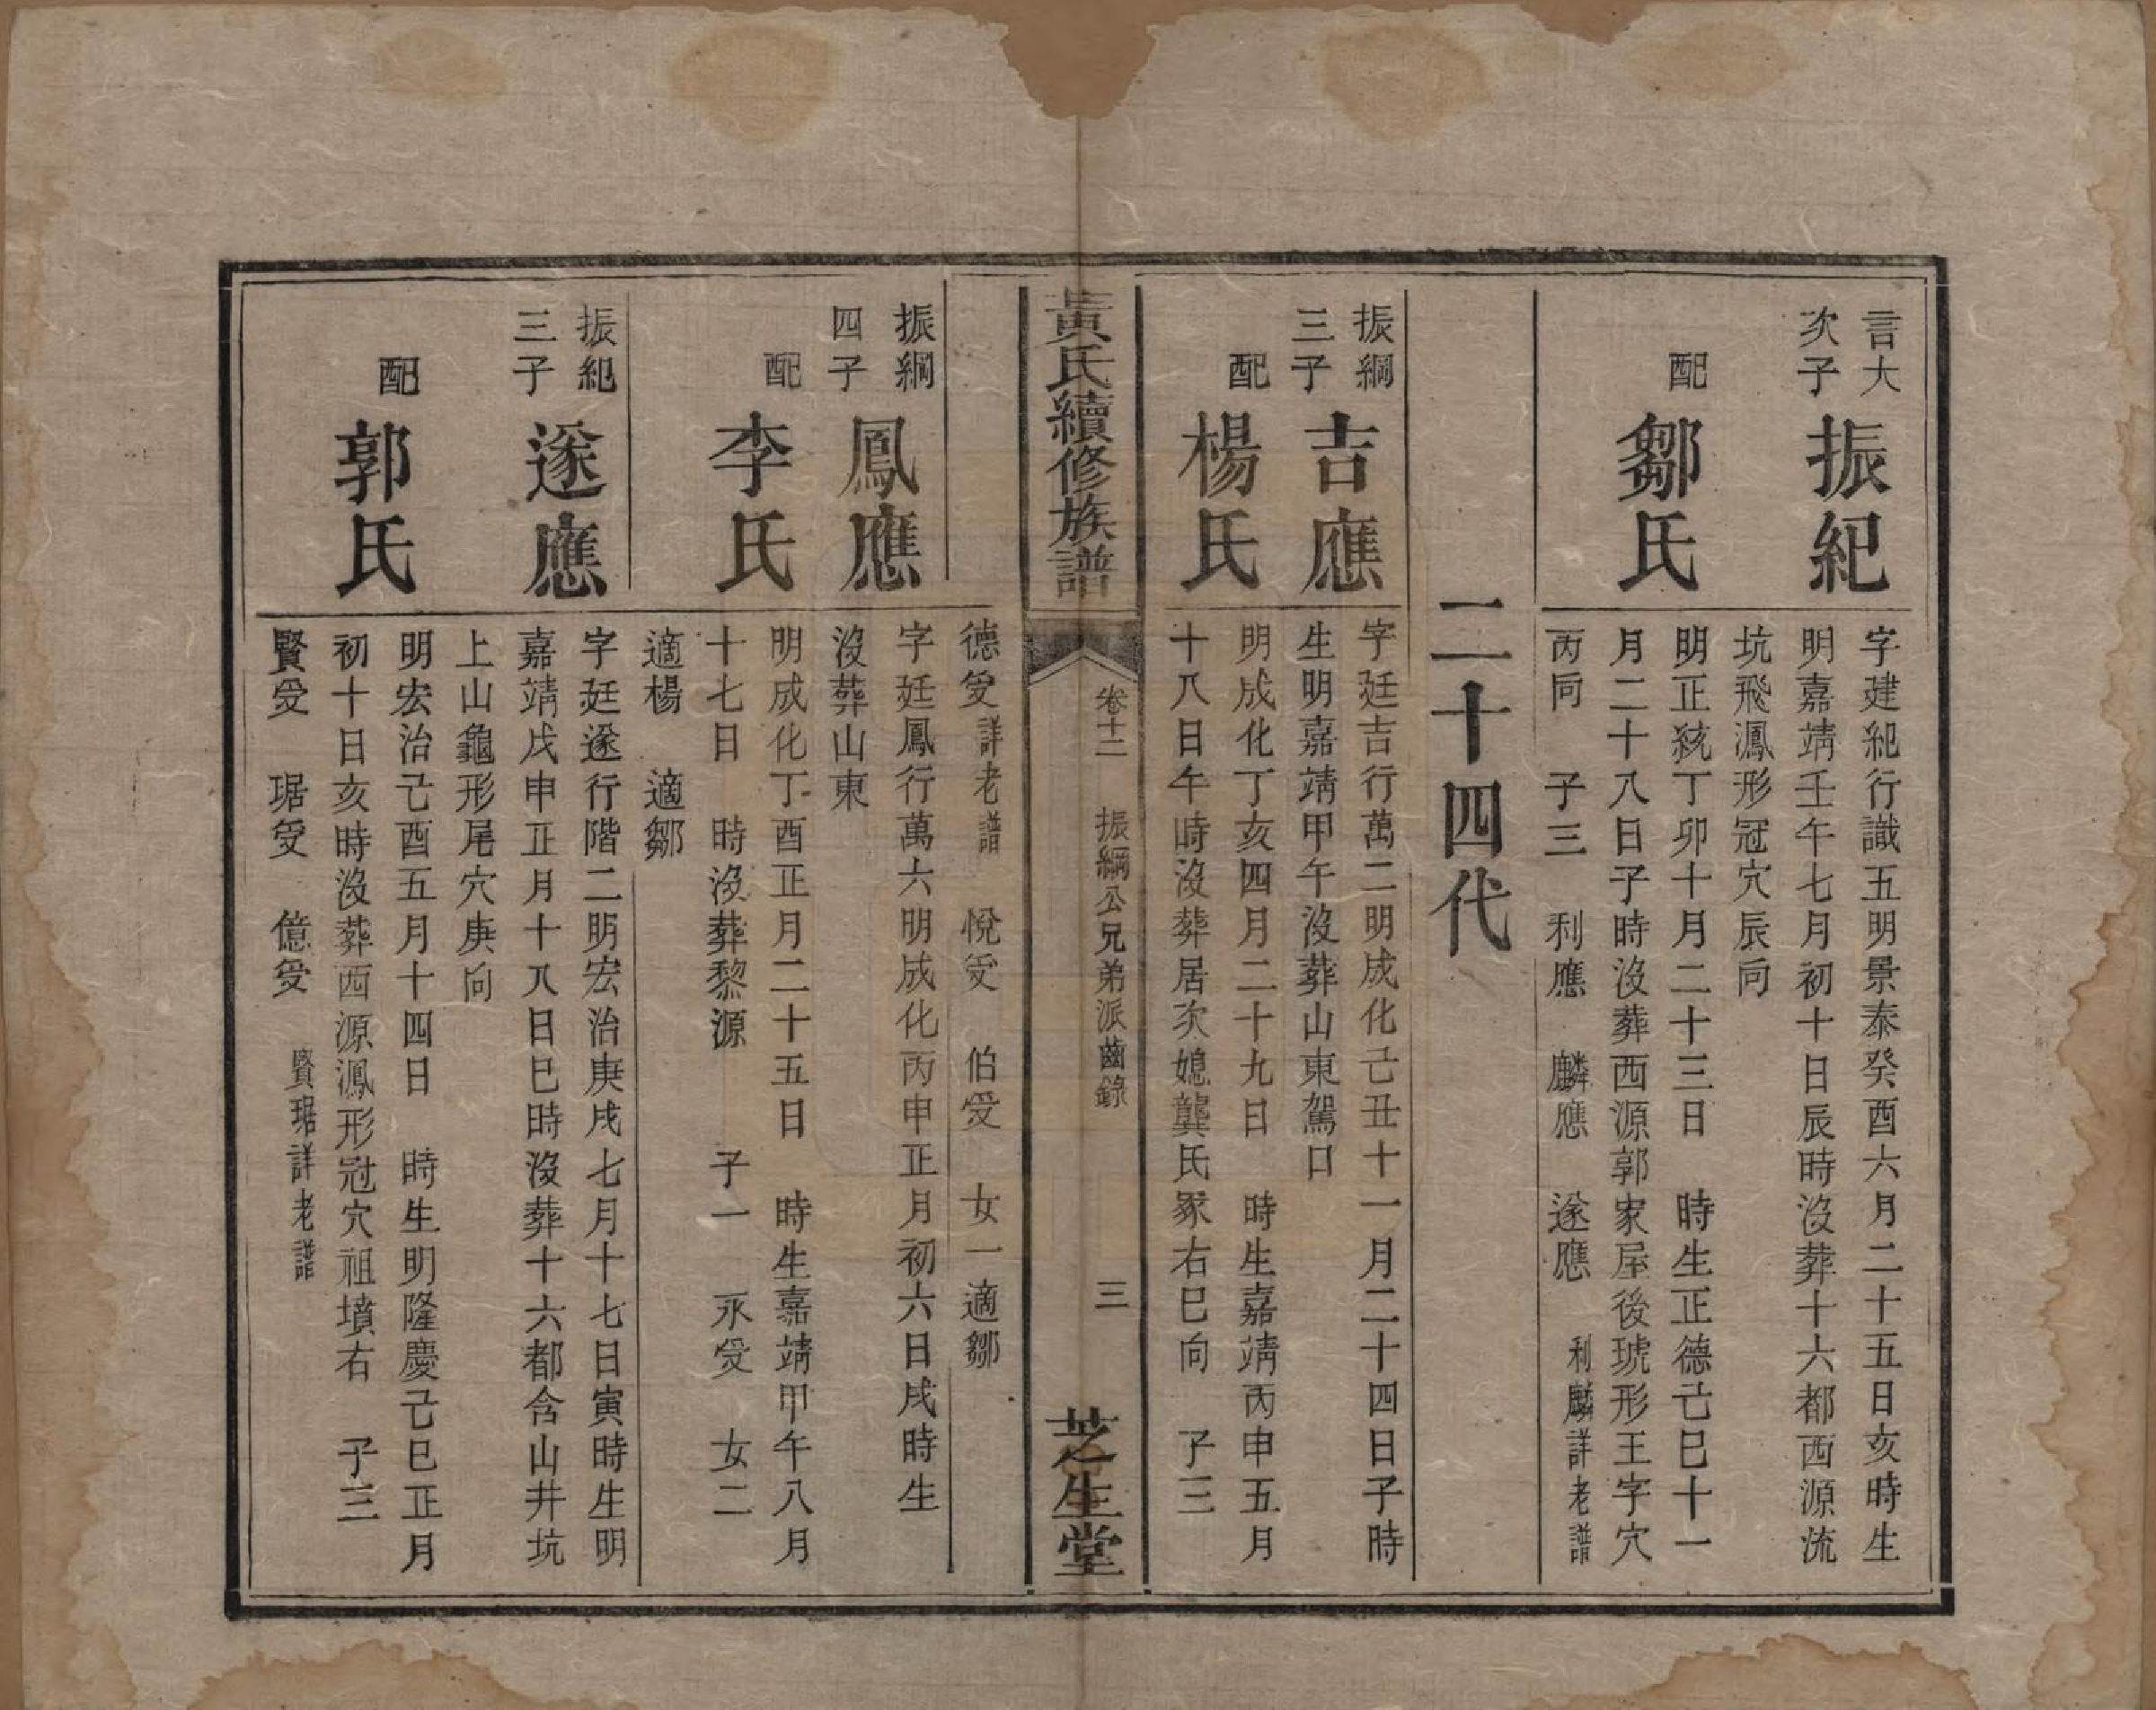 言大
次子
振紀
字建紀行識五明景泰癸酉六月二十五日亥時生
明嘉靖壬午七月初十日辰時沒葬十六都西源流
坑飛鳳形冠穴辰向
配
鄒氏
明正統丁卯十月二十三日　時生正德己巳十一
月二十八日子時沒葬西源郭家屋後琥形王字穴
丙向　子三　利應　麟應　遂應　利麟詳老譜
二十四代
振綱
三子
吉應
字廷吉行萬二明成化己丑十一月二十四日子時
生明嘉靖甲午沒葬山東駕口
配
楊氏
明成化丁亥四月二十九日　時生嘉靖丙申五月
十八日午時沒葬居次媳龔氏冢右巳向　子三
黃氏續修族譜
卷十二　振綱公兄弟派齒錄　三
芝生堂
德受詳老譜　悅受　伯受　女一適鄒
振綱
四子
鳳應
字廷鳳行萬六明成化丙申正月初六日戌時生
沒葬山東
配
李氏
明成化丁酉正月二十五日　時生嘉靖甲午八月
十七日　時沒葬黎源　子一　永受　女二
適楊　適鄒
振紀
三子
遂應
字廷遂行階二明宏治庚戌七月十七日寅時生明
嘉靖戊申正月十八日巳時沒葬十六都含山井坑
上山龜形尾穴庚向
配
郭氏
明宏治己酉五月十四日　時生明隆慶己巳正月
初十日亥時沒葬西源鳳形冠穴祖墳右　子三
賢受　琚受　億受　賢琚詳老譜